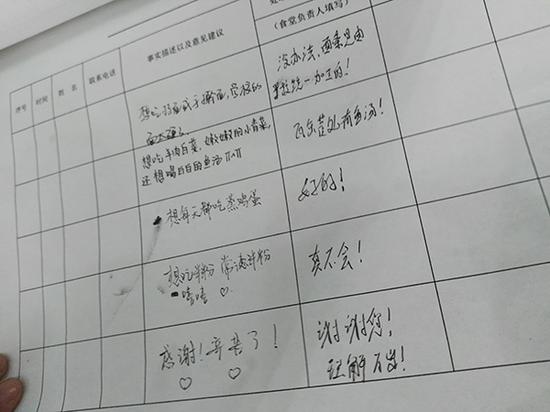 序号
时间
姓 名
联系电话
事实描述以及意见建议
（食堂负责人填写）
想吃
学校的
面太硬了
没办法，面条是由
学校统一加工的！
想吃羊肉白菜，嫩嫩的小青菜，
还想喝白白的鱼汤
瓦缶芸处有鱼汤！
想每天都吃蒸鸡蛋
好的！
想吃米粉 常德米粉
嘻嘻 ♡
真不会！
感谢！辛苦了！
♡ ♡
谢谢您！
理解万岁！